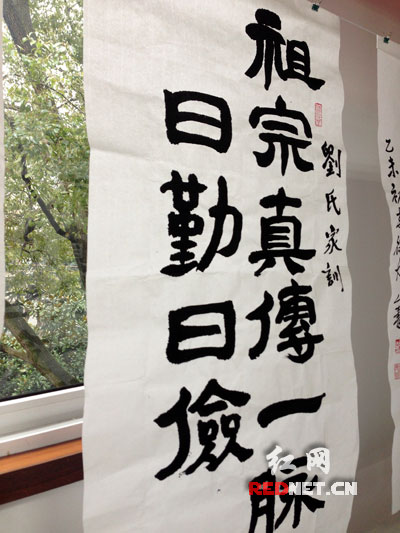 祖宗真傳一脉
曰勤曰儉
劉氏家訓
乙未初
红网
REDNET.CN